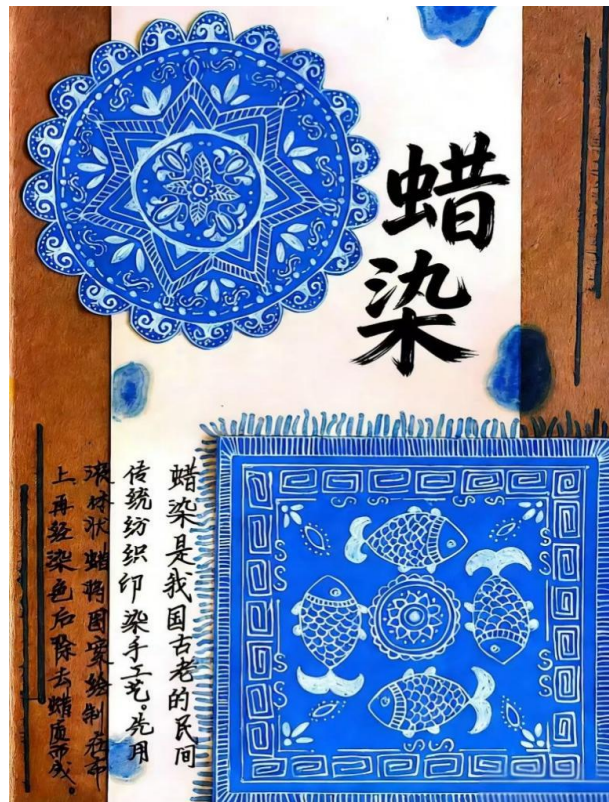 蜡染
蜡染是我国古老的民间
传统纺织印染手工艺。先用
液体状蜡将图案绘制在布
上再经染色后除去蜡质而成。